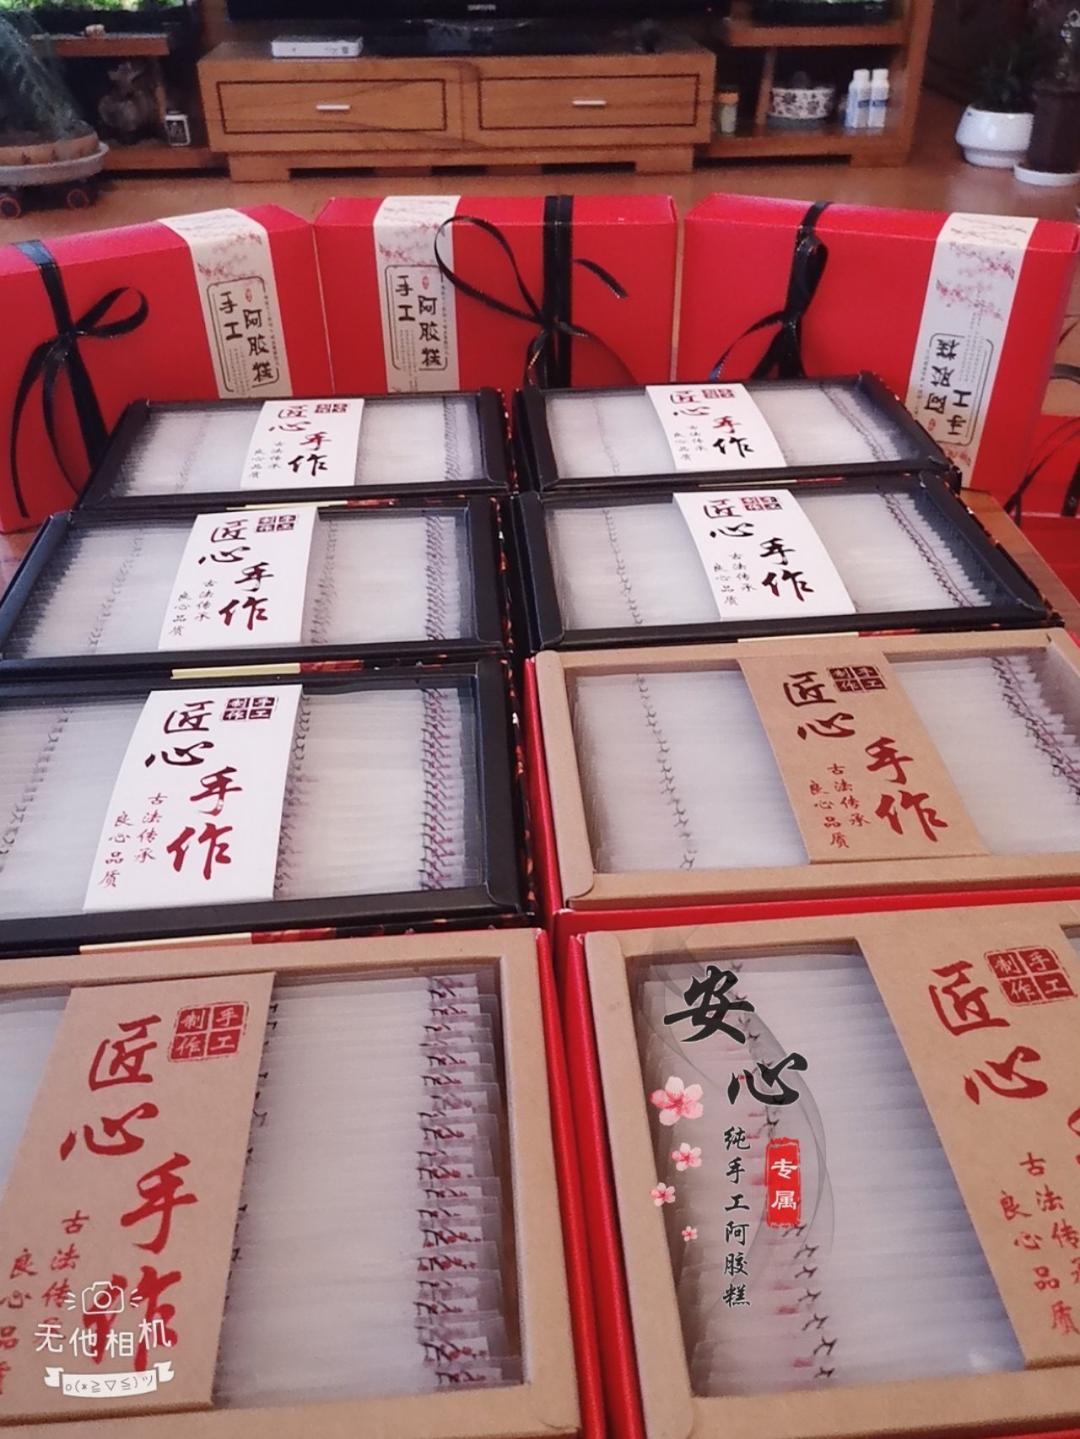 SAMSUNG
手工
阿胶糕
手工
阿胶糕
手工
阿胶糕
匠心
手作
手工
制作
古法传承
良心品质
匠心
手作
手工
制作
古法传承
良心品质
匠心
手作
手工
制作
古法传承
良心品质
匠心
手作
手工
制作
古法传承
良心品质
匠心
手作
手工
制作
古法传承
良心品质
匠心
手作
手工
制作
古法传承
良心品质
匠心
手作
手工
制作
古法传
良心品
匠心
手工
制作
古法传
良心品质
安心
纯手工阿胶糕
专属
无他相机
o(*≧▽≦)ツ